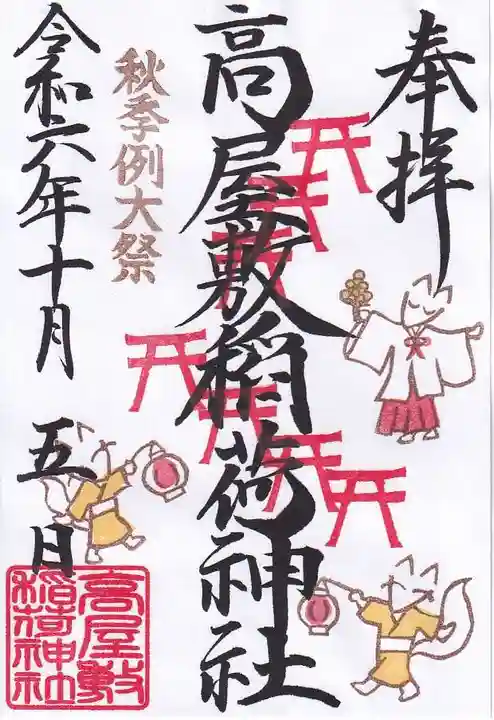 奉拝
高屋敷稲荷神社
秋季例大祭
令和六年十月五日
高屋敷
稲荷神社